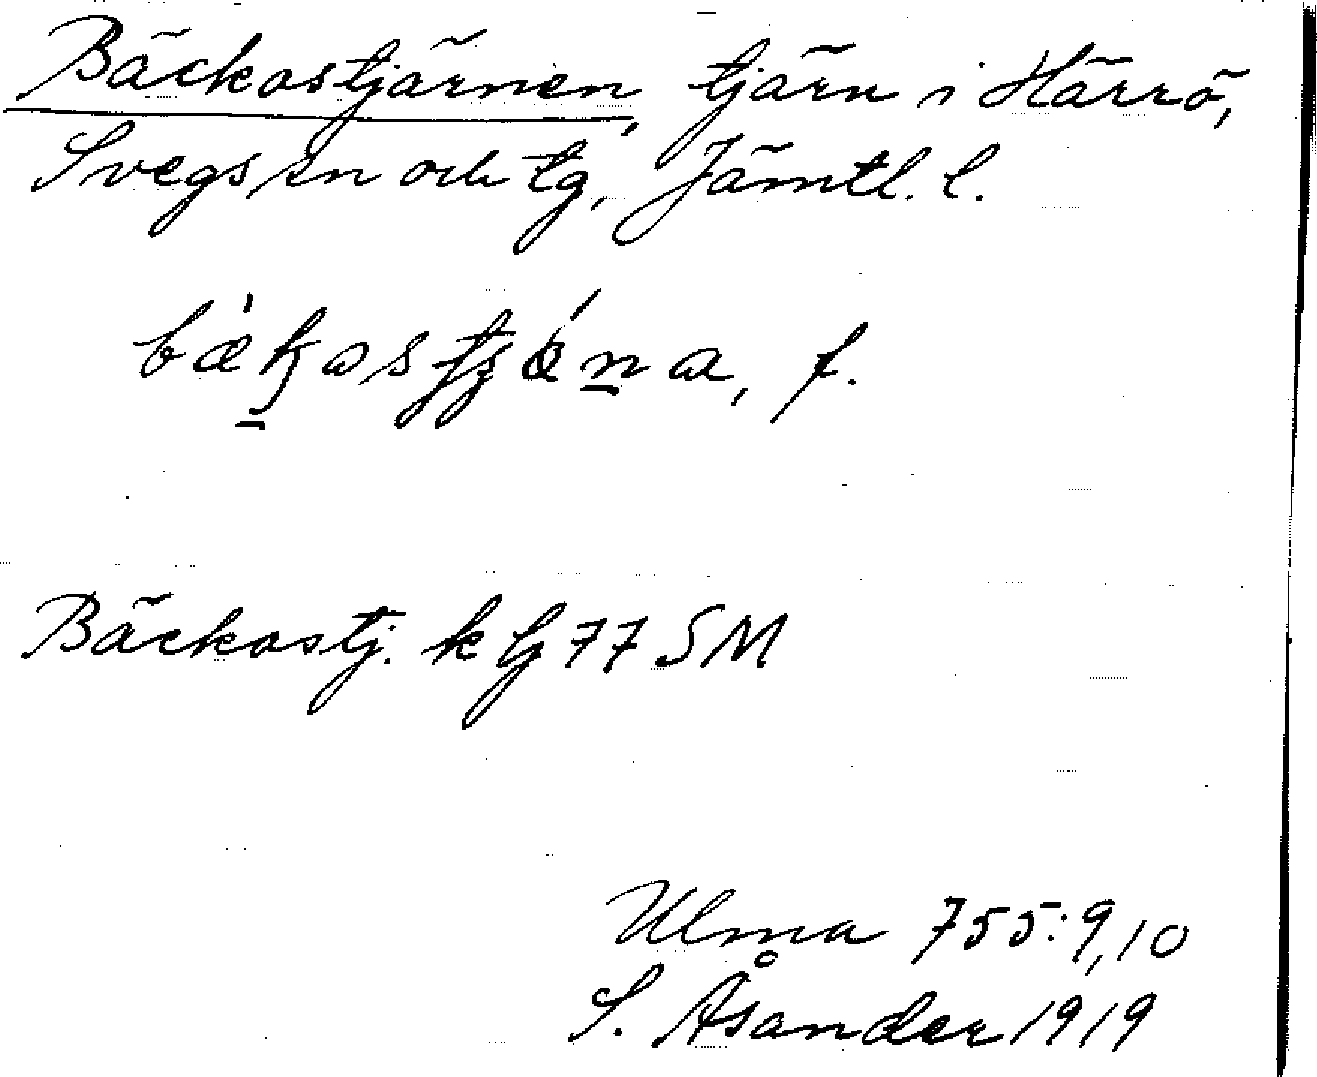 Bäckostjärnen, tjärn i Härrö,
Svegs sn och tg, Jämtl. l.
Bäckostj. k bg 77 SM
Ulma 755:9,10
S. Åsander 1919